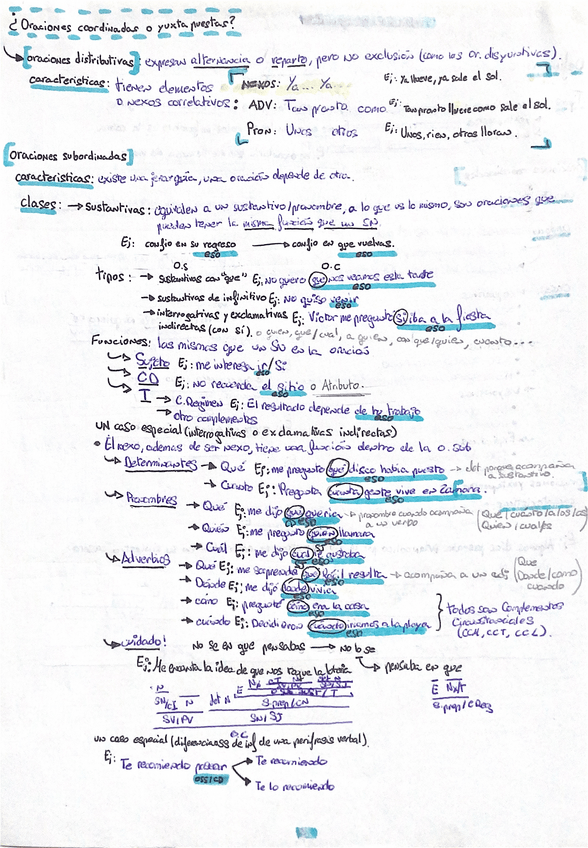 ¿Oraciones coordinadas o yuxtapuestas?
[oraciones distributivas] expresan alternancia o reparto, pero no exclusión (como las or. disyuntivas).
características: tienen elementos NEXOS: Ya ... Ya Ej: Ya llueve, ya sale el sol.
o nexos correlativos: ADV: Tan pronto como Ej: Tan pronto llueve como sale el sol.
Pron: Unos otros Ej: Unos, rien, otros lloran.
[Oraciones subordinadas]
características: existe una jerarquía, una oración depende de otra.
Clases: → sustantivas: equivalen a un sustantivo/pronombre, a lo que es lo mismo, son oraciones que
pueden tener la misma función que un SN.
Ej: confío en su regreso → confío en que vuelvas.
eso eso
O.S O.C
tipos: → sustantivas con "que" Ej: No quiero que nos veamos esta tarde
eso
→ sustantivas de infinitivo Ej: No quiso venir
eso
→ interrogativas y exclamativas Ej: Victor me preguntó si iba a la fiesta
indirectas (con si). o quien, que/cual, a quien, con que/quien, cuanto...
eso
Funciones: las mismas que un SN en la oración
→ Sujeto Ej: me interesa ir/Si
eso
→ CD Ej: No recuerda el sitio o Atributo.
eso
→ T → C.Regimen Ej: El resultado depende de tu trabajo
→ otro complementos eso
UN caso especial (interrogativas o exclamativas indirectas)
• El nexo, ademas de ser nexo, tiene una función dentro de la o. sub
→ Determinantes → Qué Ej: me pregunto qué disco había puesto → det porque acompaña
eso a sustantivo.
→ Cuanto Ej: Pregunta cuanta gente vive en Zamora.
eso
→ Pronombres → Qué Ej: me dijo que quería → pronombre cuando acompaña
CD eso a un verbo
→ Quién Ej: me pregunto quien llamara
eso
→ Cuál Ej: me dijo cual le gustaba
eso
→ Adverbios → Qué Ej: me sorprende que fácil resulta → acompaña a un adj (Que
Donde/como
cuando)
eso
→ Dónde Ej: me dijo donde vivía
eso
→ cómo Ej: pregunto cómo era la casa
eso
→ cuándo Ej: Decidieron cuando iríamos a la playa
eso
} todos son Complementos
Circunstanciales
(CCM, CCT, CCL).
→ cuidado! No se en que pensabas → No lo se
→ pensaba en que
Ej: Me encanta la idea de que nos toque la lotería
E
N
S.prep/CN
SN/CI N det N
SV/PV SN/SJ
E
S.prep/CReg
un caso especial (diferencias de inf de una perífrasis verbal).
Ej: Te recomiendo pasear → Te recomiendo
OSS/CD → Te lo recomiendo